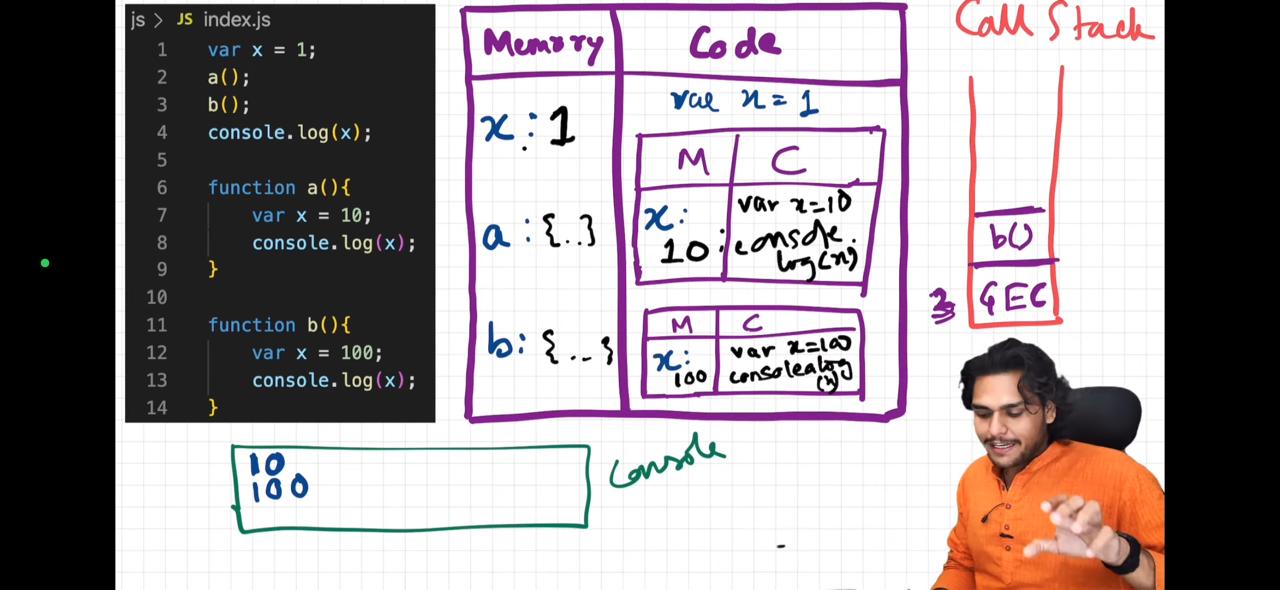 js > JS index.js
1 var x = 1;
2 a();
3 b();
4 console.log(x);
5
6 function a(){
7 var x = 10;
8 console.log(x);
9 }
10
11 function b(){
12 var x = 100;
13 console.log(x);
14 }
Memory Code
x : 1
a : {..}
b : {..}
var x = 1
M C
x:
10
var x=10
console.
log(x)
M C
x:
100
var x=100
consolealog
(x)
Call Stack
b()
GEC
10
100
Console